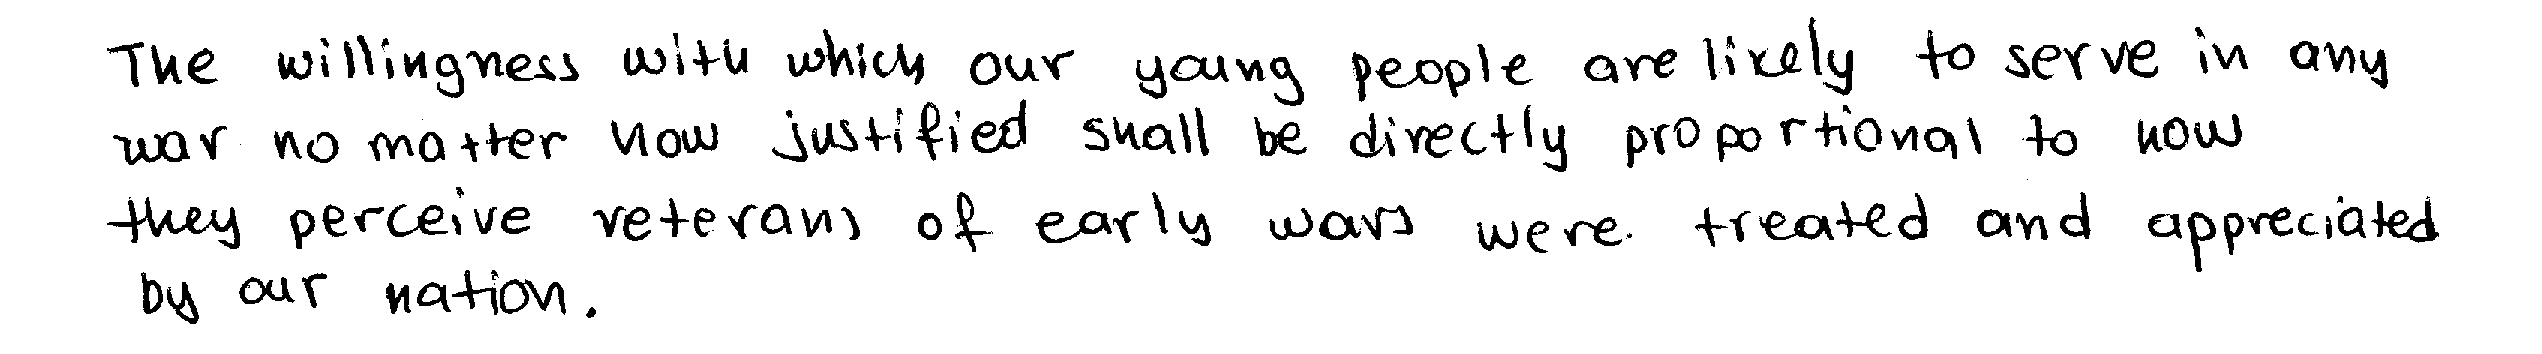 The willingness with which our young people are likely to serve in any
war no matter how justified shall be directly proportional to how
they perceive veterans of early wars were treated and appreciated
by our nation.